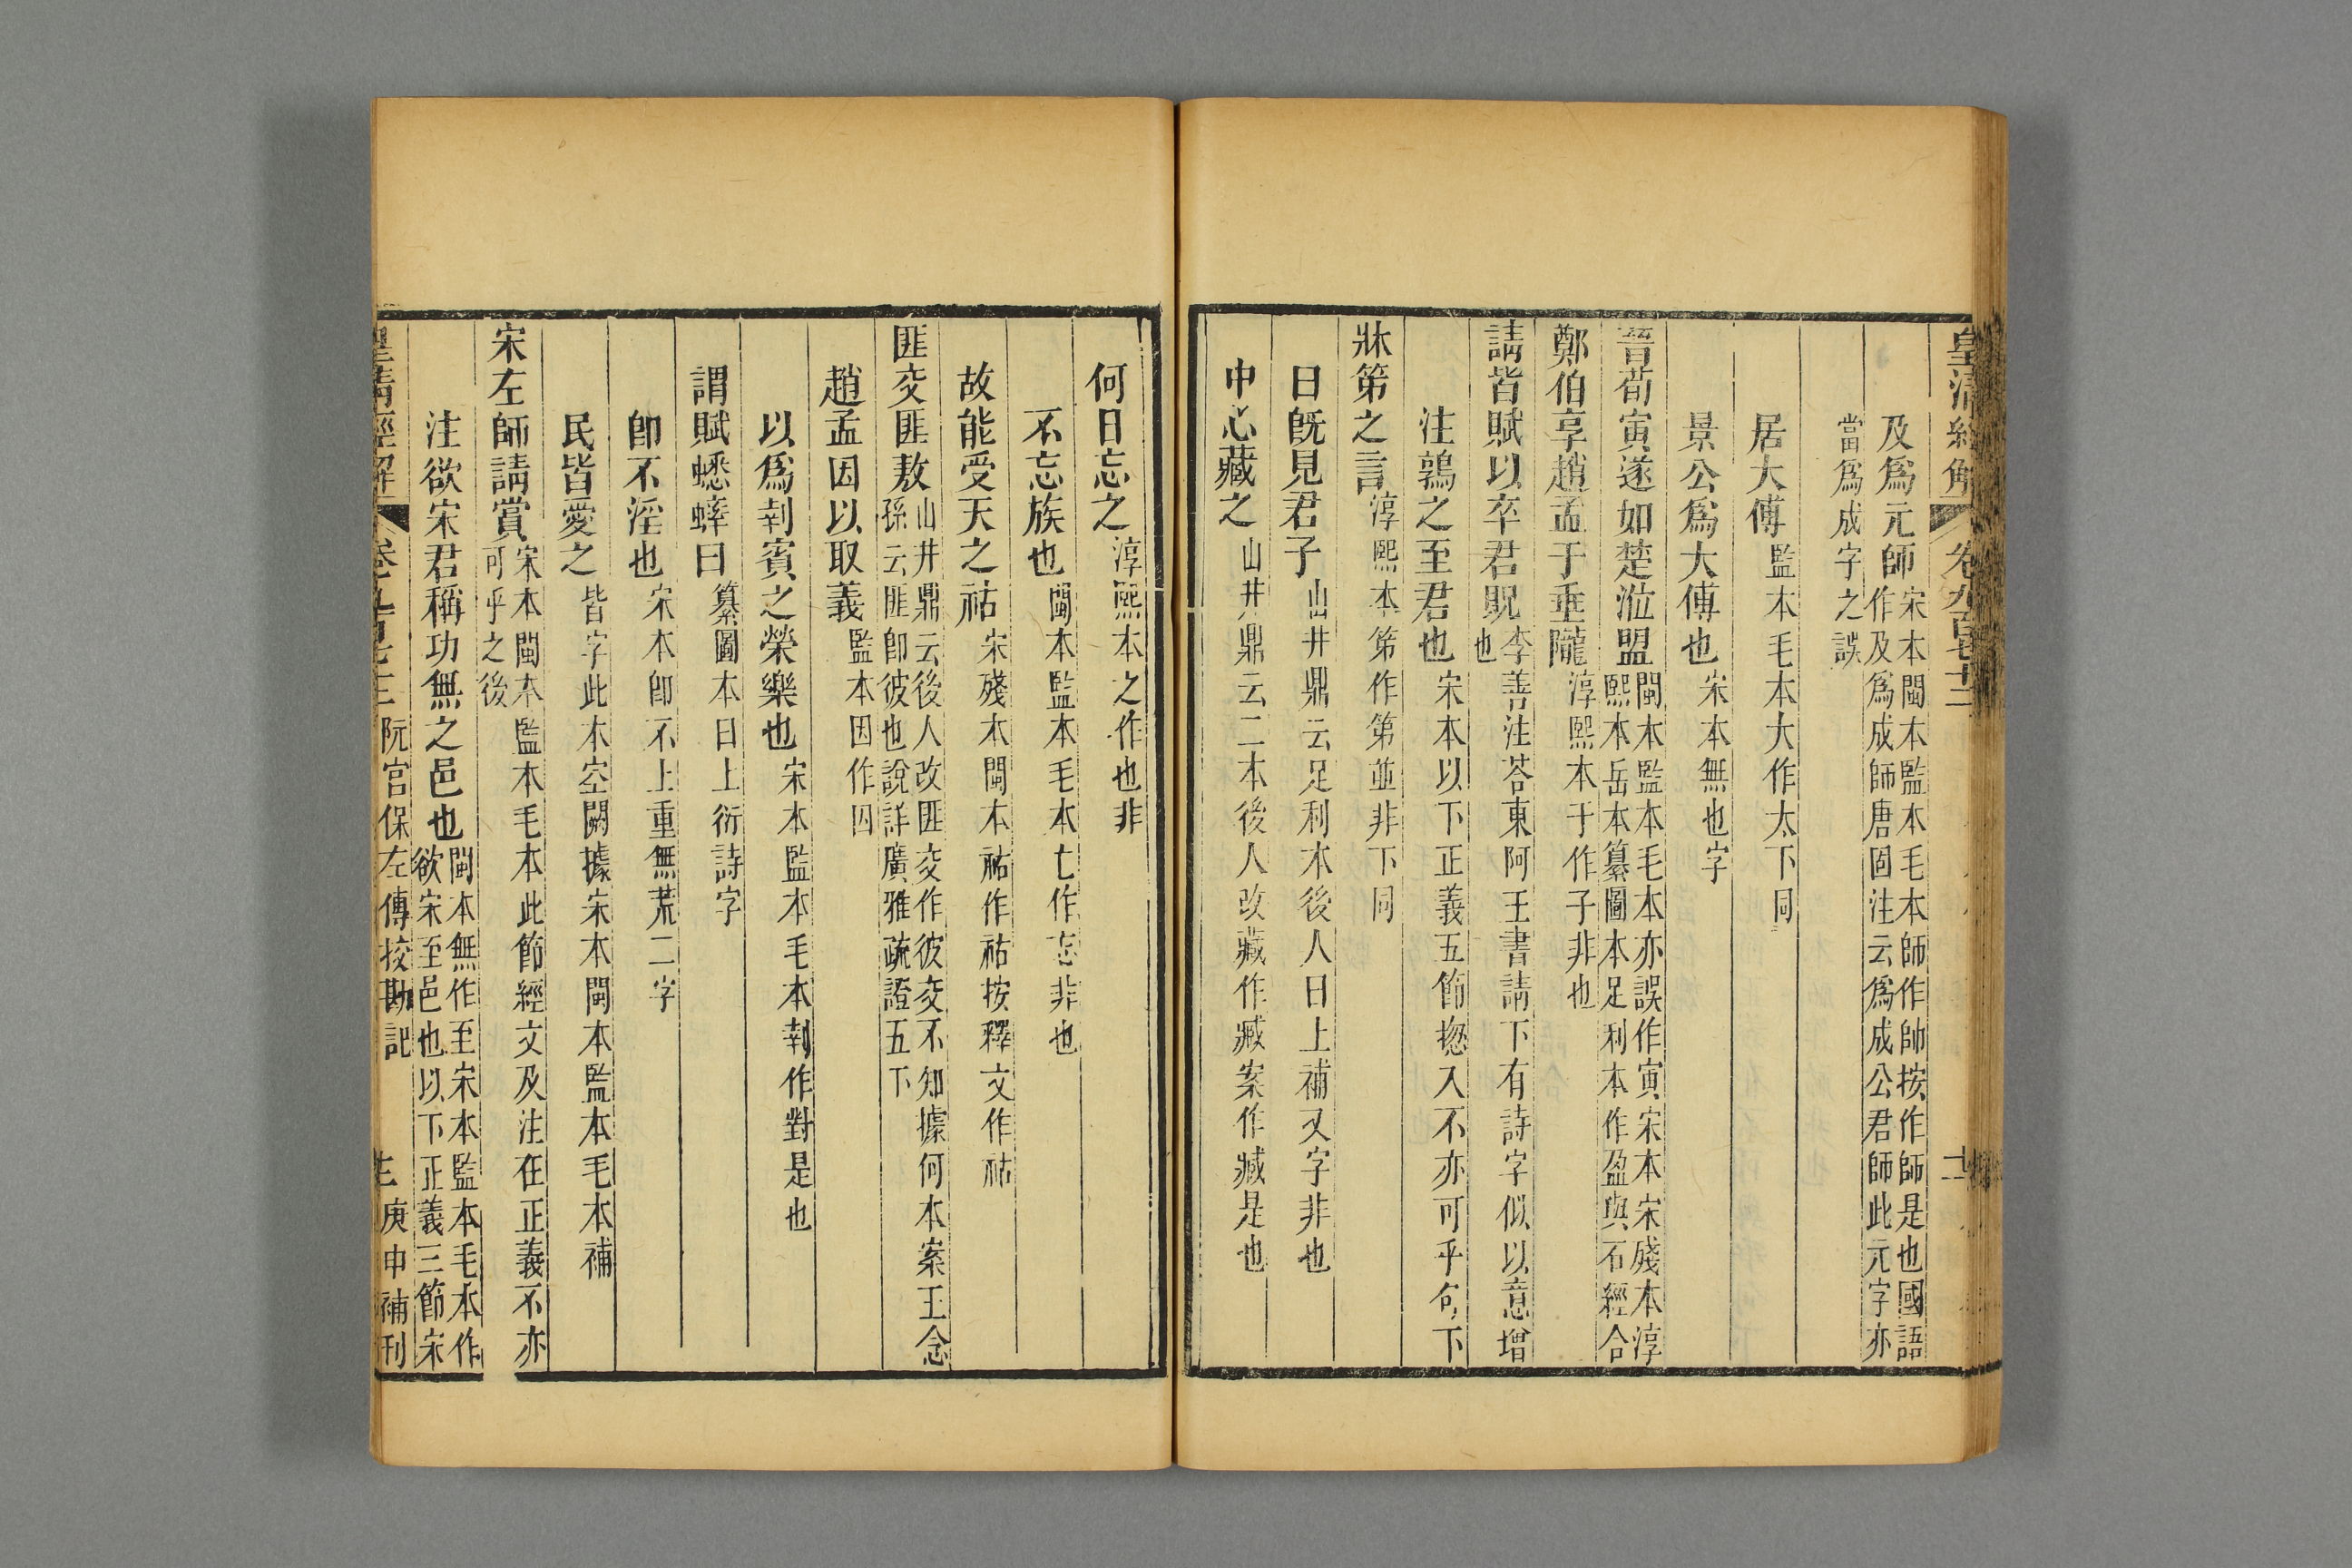 皇清經解 卷九百七十二 十二
及爲元師宋本閩本監本毛本師作帥按作師是也國語
作及爲成師唐固注云爲成公君師此元字亦
當爲成字之誤
居大傅監本毛本大作太下同
景公爲大傅也宋本無也字
晉荀寅遂如楚涖盟閩本監本毛本亦誤作寅宋本宋殘本淳
熙本岳本纂圖本足利本作盈與石經合
鄭伯享趙孟于垂隴淳熙本于作子非也
請皆賦以卒君貺李善注荅東阿王書請下有詩字似以意增
也
注鶉之至君也宋本以下正義五節揔入不亦可乎句下
牀笫之言淳熙本笫作第並非下同
日旣見君子山井鼎云足利本後人日上補又字非也
中心藏之山井鼎云二本後人改藏作臧案作臧是也
何日忘之淳熙本之作也非
不忘族也閩本監本毛本亡作忘非也
故能受天之祜宋殘本閩本祜作祐按釋文作祜
匪交匪敖山井鼎云後人改匪交作彼交不知據何本案王念
孫云匪卽彼也說詳廣雅疏證五下
趙孟因以取義監本因作囚
以爲㔿賓之榮樂也宋本監本毛本㔿作對是也
謂賦蟋蟀曰纂圖本曰上衍詩字
卽不淫也宋本卽不上重無荒二字
民皆愛之皆字此本空闕據宋本閩本監本毛本補
宋左師請賞宋本閩本監本毛本此節經文及注在正義不亦
可乎之後
注欲宋君稱功無之邑也閩本無作至宋本監本毛本作
欲宋至邑也以下正義三節宋
皇清經解 卷九百七十二 阮宮保左傳挍勘記 庚申補刊